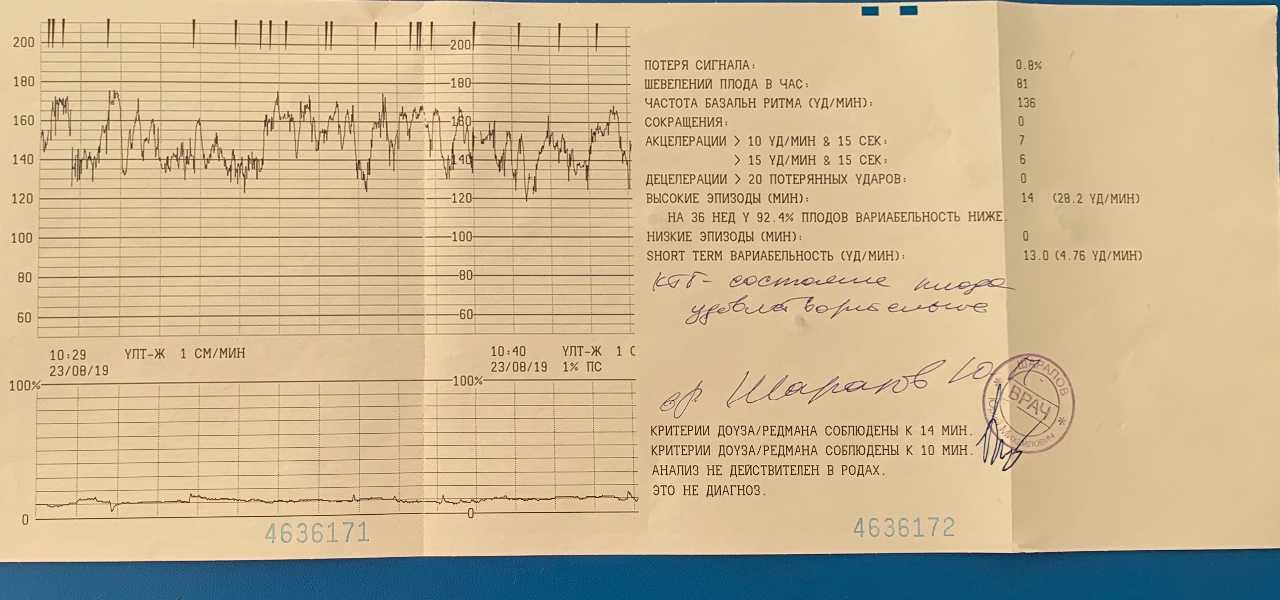 200
180
160
140
120
100
80
60
200
180
160
140
120
100
80
60
10:29 УЛТ-Ж 1 СМ/МИН
23/08/19
10:40 УЛТ-Ж 1 С
23/08/19 1% ПС
100%
0
100%
0
4636171
ПОТЕРЯ СИГНАЛА: 0.8%
ШЕВЕЛЕНИЙ ПЛОДА В ЧАС: 81
ЧАСТОТА БАЗАЛЬН РИТМА (УД/МИН): 136
СОКРАЩЕНИЯ: 0
АКЦЕЛЕРАЦИИ > 10 УД/МИН & 15 СЕК: 7
> 15 УД/МИН & 15 СЕК: 6
ДЕЦЕЛЕРАЦИИ > 20 ПОТЕРЯННЫХ УДАРОВ: 0
ВЫСОКИЕ ЭПИЗОДЫ (МИН): 14 (28.2 УД/МИН)
НА 36 НЕД У 92.4% ПЛОДОВ ВАРИАБЕЛЬНОСТЬ НИЖЕ.
НИЗКИЕ ЭПИЗОДЫ (МИН): 0
SHORT TERM ВАРИАБЕЛЬНОСТЬ (УД/МИН): 13.0 (4.76 УД/МИН)
КТГ - состояние плода
удовлетворительное
вр. Шарапов Ю.
ШАРАПОВ
ВРАЧ
КРИТЕРИИ ДОУЗА/РЕДМАНА СОБЛЮДЕНЫ К 14 МИН.
КРИТЕРИИ ДОУЗА/РЕДМАНА СОБЛЮДЕНЫ К 10 МИН.
АНАЛИЗ НЕ ДЕЙСТВИТЕЛЕН В РОДАХ.
ЭТО НЕ ДИАГНОЗ.
4636172